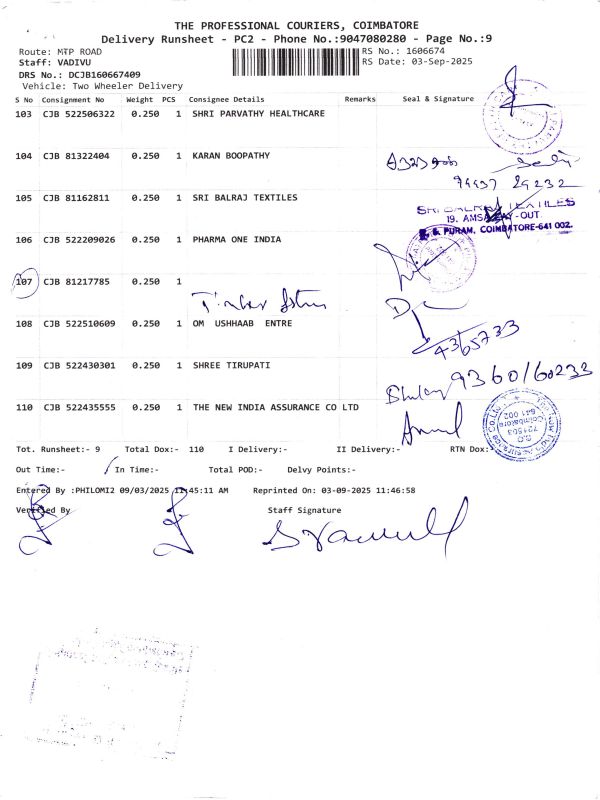 THE PROFESSIONAL COURIERS, COIMBATORE
Delivery Runsheet - PC2 - Phone No.:9047080280 - Page No.:9
Route: MTP ROAD
RS No.: 1606674
Staff: VADIVU
RS Date: 03-Sep-2025
DRS No.: DCJB160667409
Vehicle: Two Wheeler Delivery
S No Consignment No Weight PCS Consignee Details Remarks Seal & Signature
103 CJB 522506322 0.250 1 SHRI PARVATHY HEALTHCARE
104 CJB 81322404 0.250 1 KARAN BOOPATHY
105 CJB 81162811 0.250 1 SRI BALRAJ TEXTILES
SRI BALRAJ TEXTILES
-OUT.
PURAM, COIMBATORE-641 002.
106 CJB 522209026 0.250 1 PHARMA ONE INDIA
107 CJB 81217785 0.250 1
108 CJB 522510609 0.250 1 OM USHHAAB ENTRE
109 CJB 522430301 0.250 1 SHREE TIRUPATI
9360160233
110 CJB 522435555 0.250 1 THE NEW INDIA ASSURANCE CO LTD
D.O
721503
Coimbatore
641 002
Tot. Runsheet:- 9 Total Dox:- 110 I Delivery:- II Delivery:- RTN Dox:
Out Time:- In Time:- Total POD:- Delvy Points:-
Entered By :PHILOMI2 09/03/2025 12:45:11 AM Reprinted On: 03-09-2025 11:46:58
Verified By Staff Signature